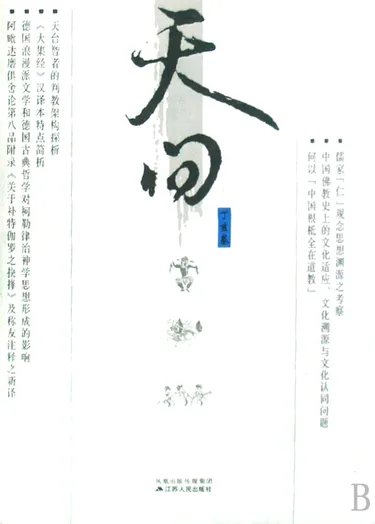 儒家「仁」观念思想溯源之考察
中国佛教史上的文化适应、文化溯源与文化认同问题
何以「中国根柢全在道教」
天问
丁亥卷
天台智者的判教架构探析
《大集经》汉译本特点简析
德国浪漫派文学和德国古典哲学对柯勒律治神学思想形成的影响
阿毗达磨俱舍论第八品附录《关于补特伽罗之抉择》及称友注释之新译
凤凰出版传媒集团
江苏人民出版社
B